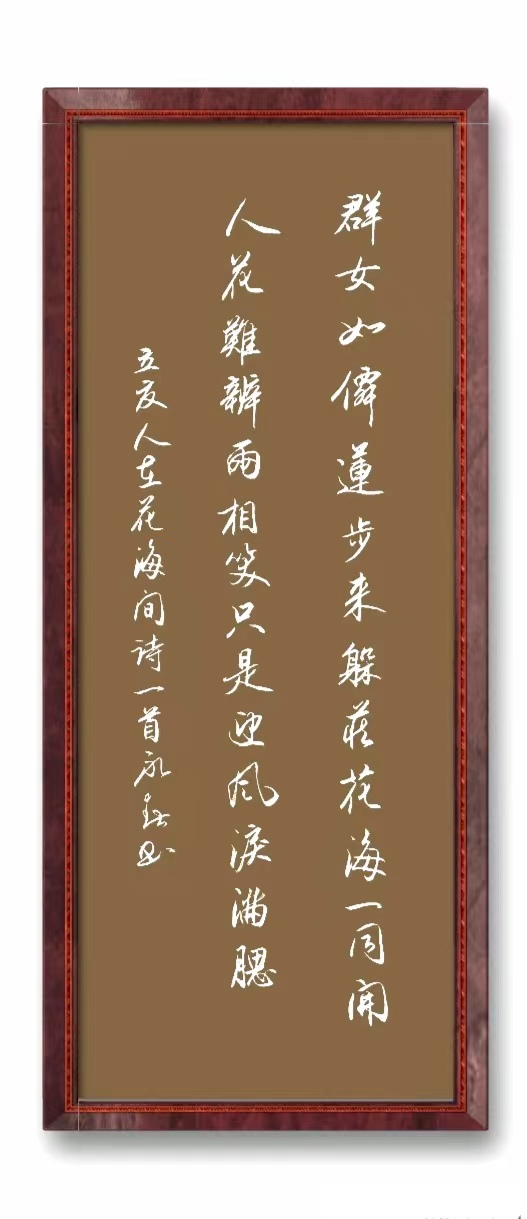 群女如僊蓮步来躲莊花海一同開
人花難辨兩相笑只是迎风淚滿腮
立友人在花海间诗一首永春书